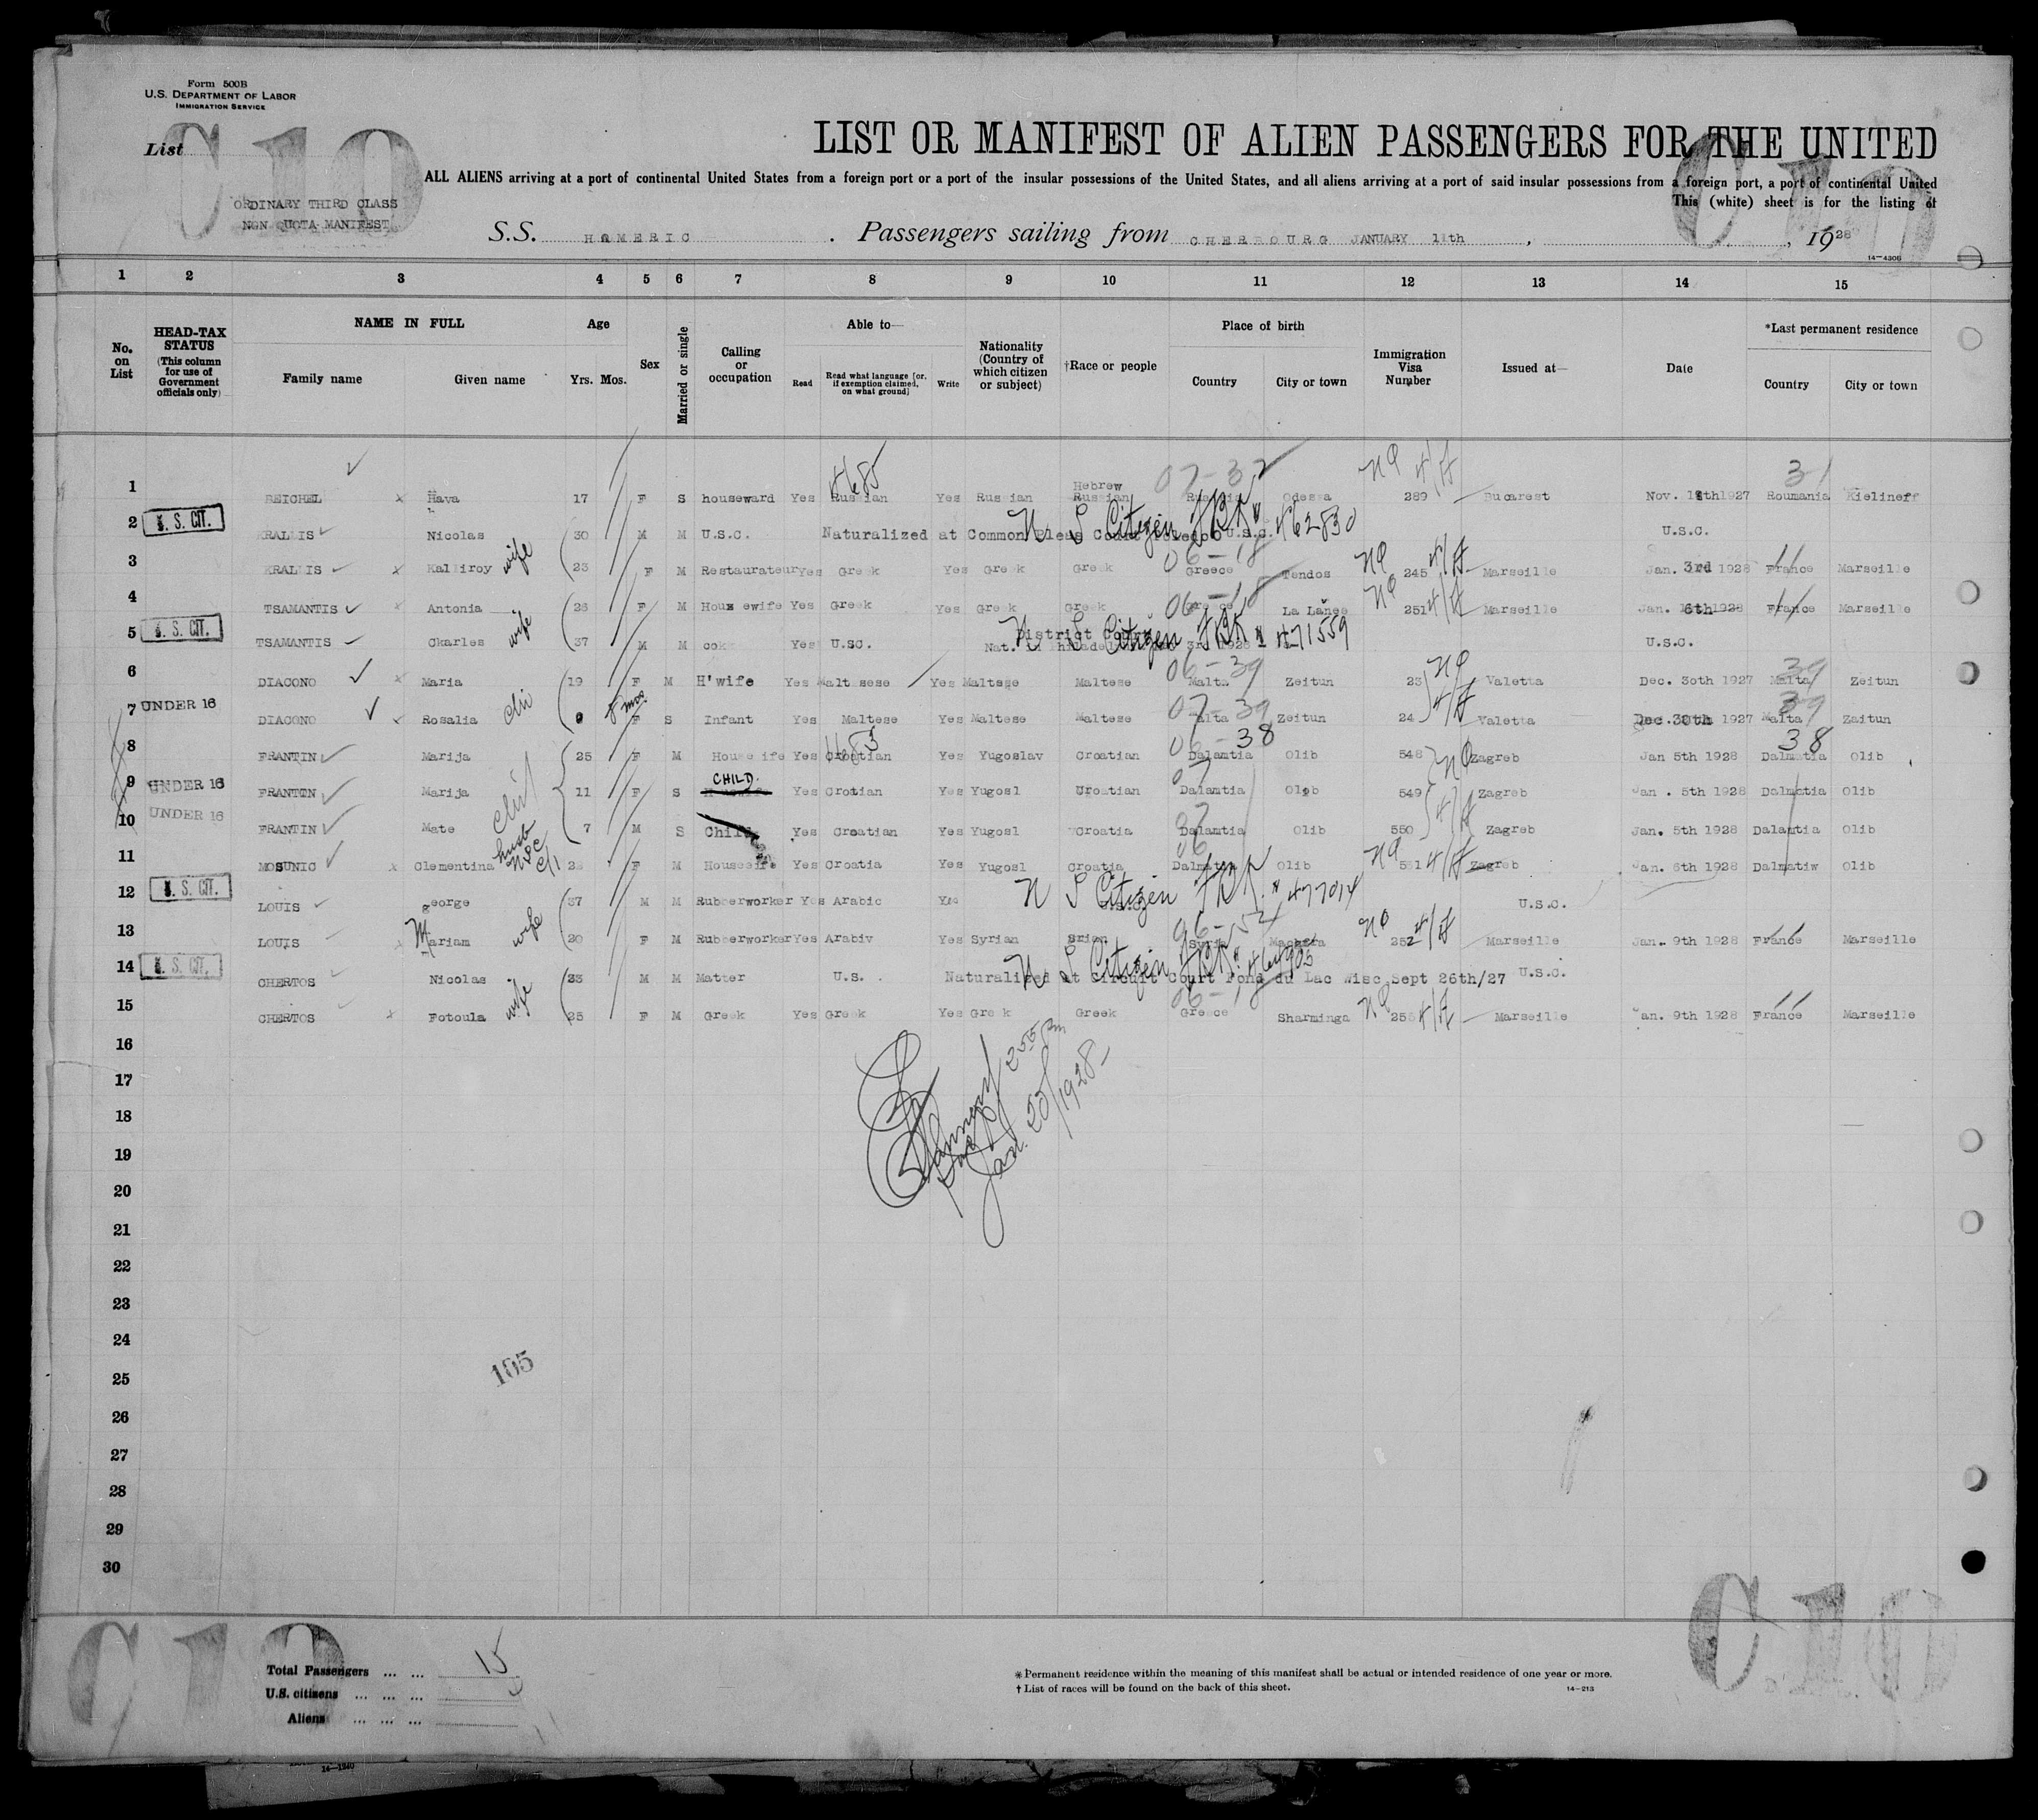 Form 500B
U.S. DEPARTMENT OF LABOR
IMMIGRATION SERVICE
C10 C10
List
LIST OR MANIFEST OF ALIEN PASSENGERS FOR THE UNITED
ALL ALIENS arriving at a port of continental United States from a foreign port or a port of the insular possessions of the United States, and all aliens arriving at a port of said insular possessions from a foreign port, a port of continental United
This (white) sheet is for the listing of
ORDINARY THIRD CLASS
NON QUOTA MANIFEST
S.S. HOMERIC . Passengers sailing from CHERBOURG JANUARY 11th , , 1928
14—4306
1 2 3 4 5 6 7 8 9 10 11 12 13 14 15
No. on List
HEAD-TAX STATUS (This column for use of Government officials only)
NAME IN FULL Family name Given name
Age Yrs. Mos.
Sex
Married or single
Calling or occupation
Able to— Read Read what language [or, if exemption claimed, on what ground] Write
Nationality (Country of which citizen or subject)
†Race or people
Place of birth Country City or town
Immigration Visa Number
Issued at—
Date
*Last permanent residence Country City or town
4685 07-32 NQ 4/H 31
Hebrew
1 REICHEL x Hava 17 F S houseward Yes Russian Yes Russian Russian Russia Odessa 289 Bucarest Nov. 18th1927 Roumania Kielineff
2 U. S. CIT. KRALLIS Nicolas 30 M M U.S.C. Naturalized at Common Pleas Court Toledo O U.S.C. U.S.C.
N S Citizen 462830
3 KRALLIS x Kalliroy wife 23 F M Restaurateur Yes Greek Yes Greek Greek 06-18 Greece Tendos NQ 245 4/H Marseille Jan. 3rd 1928 France Marseille
4 TSAMANTIS x Antonia 26 F M Housewife Yes Greek Yes Greek Greek 06-18 Greece NQ 251 4/H Marseille Jan. 6th 1928 France Marseille
5 U. S. CIT. TSAMANTIS Ckarles wife 37 M M cok Yes U.SC. District Court Nat. N S Citizen 471559 U.S.C.
6 DIACONO x Maria 19 F M H'wife Yes Maltsese Yes Maltese Maltese 06-39 Malta Zeitun 23 NQ Valetta Dec. 30th 1927 39 Malta Zeitun
7 UNDER 16 DIACONO x Rosalia 8 mos F S Infant Yes Maltese Yes Maltese Maltese 07-39 Malta Zeitun 24 4/H Valetta Dec. 30th 1927 39 Malta Zaitun
8 FRANTIN Marija 25 F M Housewife Yes Croatian Yes Yugoslav Croatian 06-38 Dalamtia Olib 548 NQ Zagreb Jan 5th 1928 38 Dalmatia Olib
9 UNDER 16 FRANTIN Marija 11 F S CHILD. Yes Crotian Yes Yugosl Croatian 07 Dalamtia Olib 549 Zagreb Jan . 5th 1928 Dalmatia Olib
10 UNDER 16 FRANTIN Mate 7 M S Child Yes Croatian Yes Yugosl Croatia 07 Dalamtia Olib 550 4/H Zagreb Jan. 5th 1928 Dalamtia Olib
11 MOSUNIC x Clementina husb 26 F M Housewife Yes Croatia Yes Yugosl Croatia 06 Dalmatia Olib NQ 551 4/H Zagreb Jan. 6th 1928 Dalmatiw Olib
12 U. S. CIT. LOUIS george 37 M M Rubberworker Yes Arabic Yes N S Citizen 477014 U.S.C.
13 LOUIS x Mariam wife 20 F M Rubberworker Yes Arabiv Yes Syrian Srian 06-54 Syria NQ 252 4/H Marseille Jan. 9th 1928 France Marseille
14 U. S. CIT. CHERTOS Nicolas 33 M M Matter U.S. . Naturalised at Circuit Court Fond du Lac Wisc Sept 26th/27 U.S.C.
N S Citizen 464905
15 CHERTOS x Fotoula wife 25 F M Greek Yes Greek Yes Greek Greek 06-18 Greece Sharminga NQ 255 4/H Marseille Jan. 9th 1928 France Marseille
16
17
Jan. 20/1928
18
19
20
21
22
23
24
105
25
26
27
28
29
30
C10 C10
Total Passengers ... ... 15
U.S. citizens ... ... ...
Aliens ... ... ...
*Permanent residence within the meaning of this manifest shall be actual or intended residence of one year or more.
†List of races will be found on the back of this sheet.
14—213
14—1240